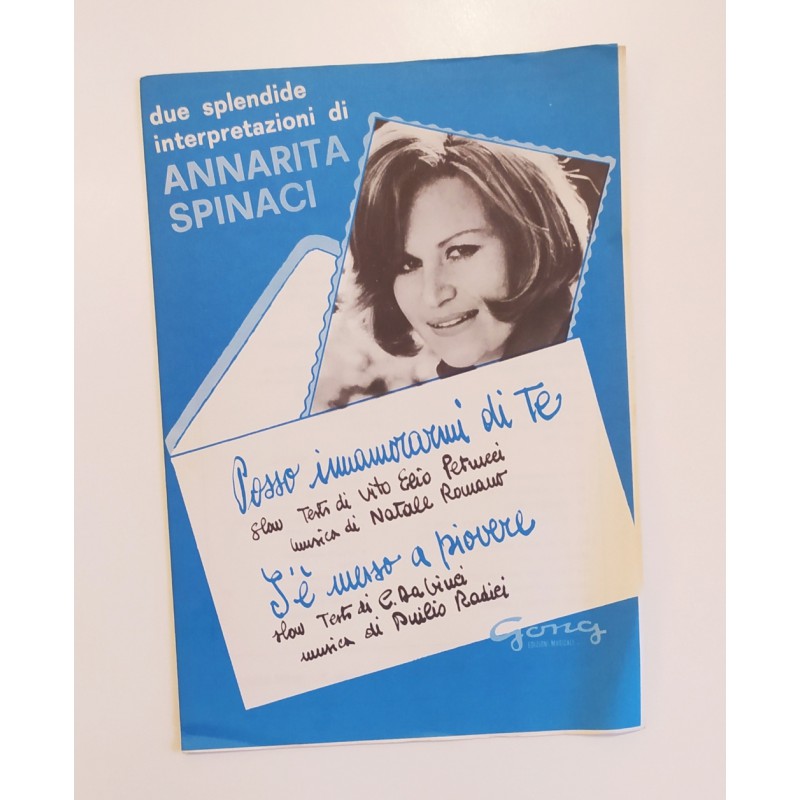 due splendide
interpretazioni di
ANNARITA
SPINACI
Posso innamorarmi di Te
slow Testo di Vito Elio Petrucci
musica di Natale Romano
S'è messo a piovere
slow Testo di C. Da Vinci
musica di Duilio Radici
Gong
EDIZIONI MUSICALI